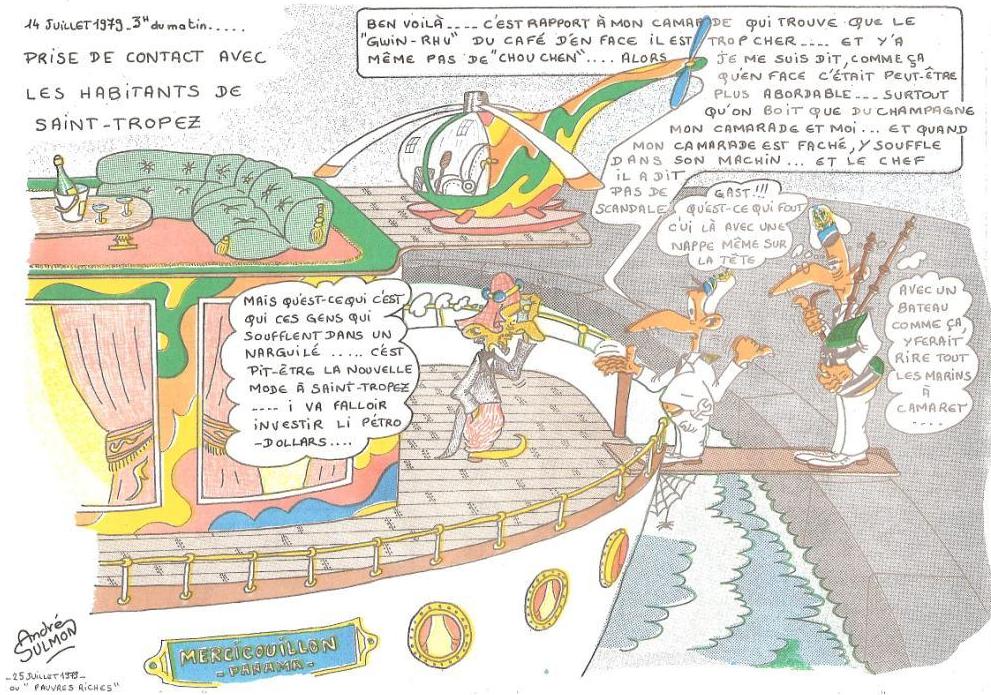 14 JUILLET 1979_3H du matin.....
PRISE DE CONTACT AVEC
LES HABITANTS DE
SAINT-TROPEZ
BEN VOILÀ.... C'EST RAPPORT À MON CAMARADE QUI TROUVE QUE LE
"GWIN-RHU" DU CAFÉ D'EN FACE IL EST TROP CHER.... ET Y'A
MÊME PAS DE "CHOUCHEN".... ALORS JE ME SUIS DIT, COMME ÇA
QU'EN FACE C'ÉTAIT PEUT-ÊTRE
PLUS ABORDABLE.... SURTOUT
QU'ON BOIT QUE DU CHAMPAGNE
MON CAMARADE ET MOI... ET QUAND
MON CAMARADE EST FACHÉ, Y SOUFFLE
DANS SON MACHIN... ET LE CHEF
IL A DIT
PAS DE
SCANDALE
GAST!!!
QU'EST-CE QUI FOUT
C'UI LÀ AVEC UNE
NAPPE MÊME SUR
LA TÊTE
MAIS QU'EST-CE QUI C'EST
QUI CES GENS QUI
SOUFFLENT DANS UN
NARGUILÉ ..... C'EST
PIT-ÊTRE LA NOUVELLE
MODE À SAINT-TROPEZ
.... I VA FALLOIR
INVESTIR LI PÉTRO
-DOLLARS....
AVEC UN
BATEAU
COMME ÇA,
Y FERAIT
RIRE TOUT
LES MARINS
À
CAMARET
....
André
SULMON
_25 JUILLET 1979_
OU "PAUVRES RICHES"
MERCICOUILLON
- PANAMA -